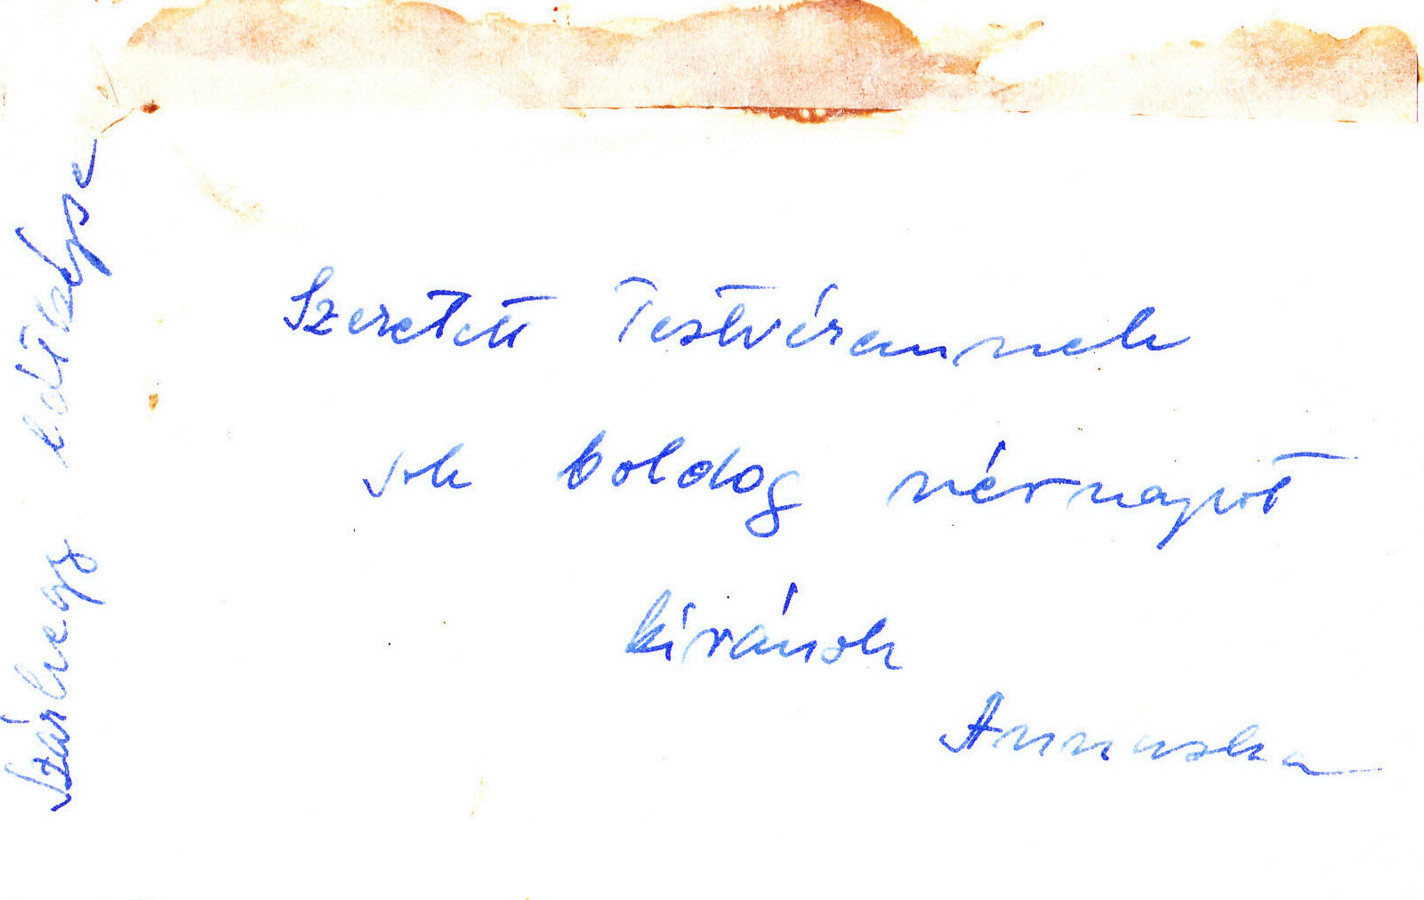 Szeretett Testvéremnek
sok boldog névnapot
kívánok
Annuska
Szárhegy látképe